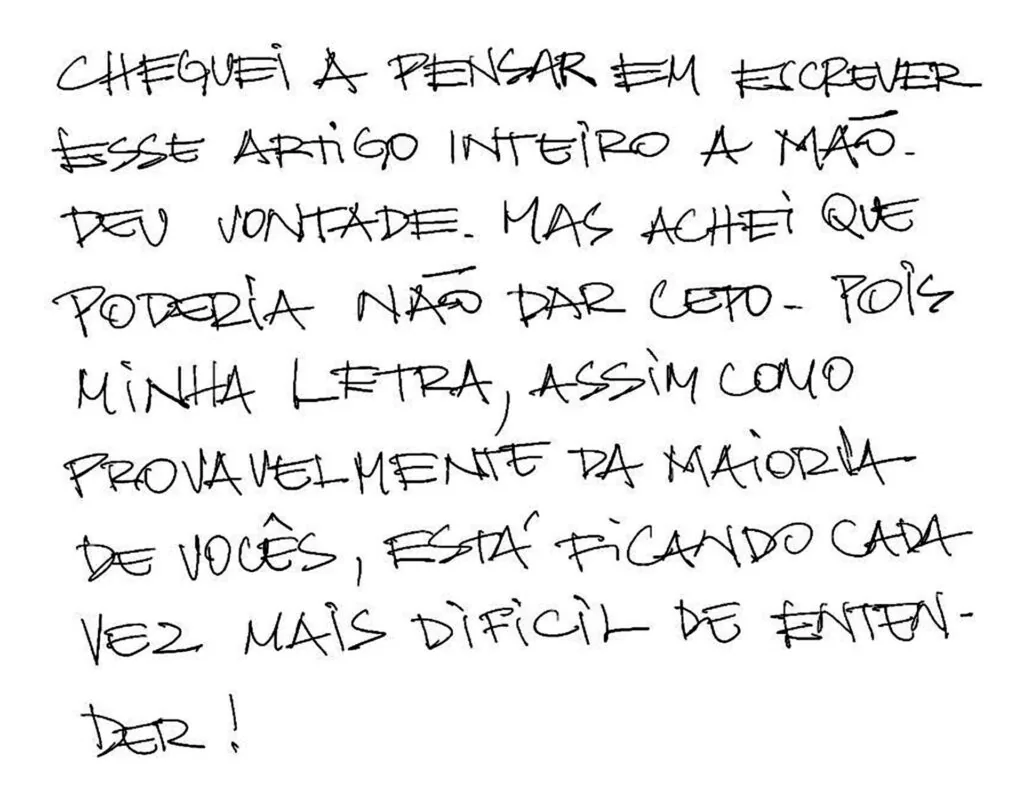 CHEGUEI A PENSAR EM ESCREVER
ESSE ARTIGO INTEIRO A MÃO.
DEU VONTADE. MAS ACHEI QUE
PODERIA NÃO DAR CERTO. POIS
MINHA LETRA, ASSIM COMO
PROVAVELMENTE DA MAIORIA
DE VOCÊS, ESTÁ FICANDO CADA
VEZ MAIS DIFICIL DE ENTEN-
DER!